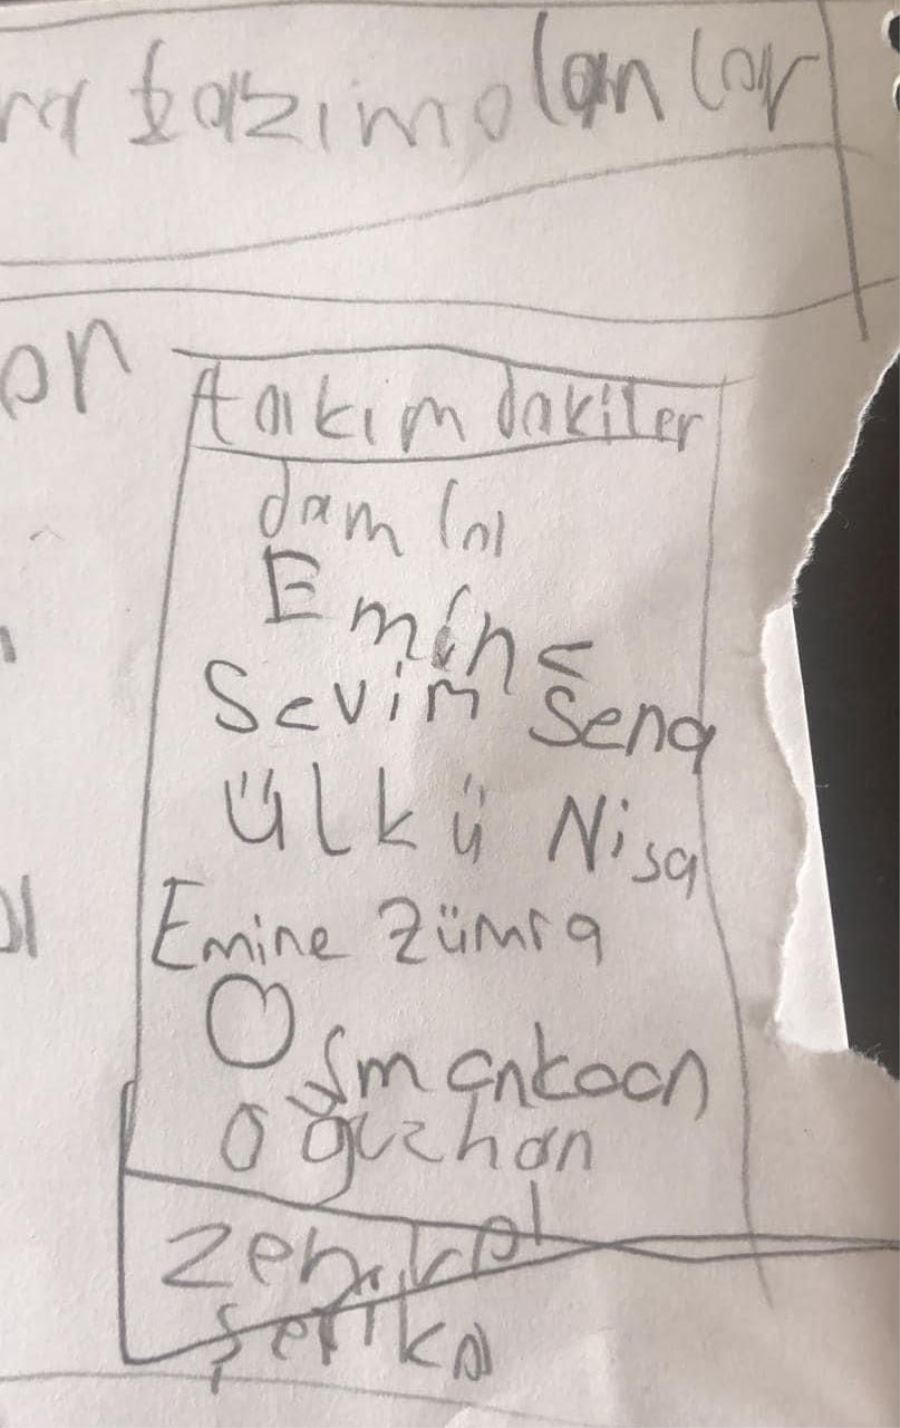 lazımolanlar
on
takımdakiler
damla
Emine
Sevim Sena
Ülkü Nisa
Emine Zümra
Osmankaan
Oğuzhan
Şerika